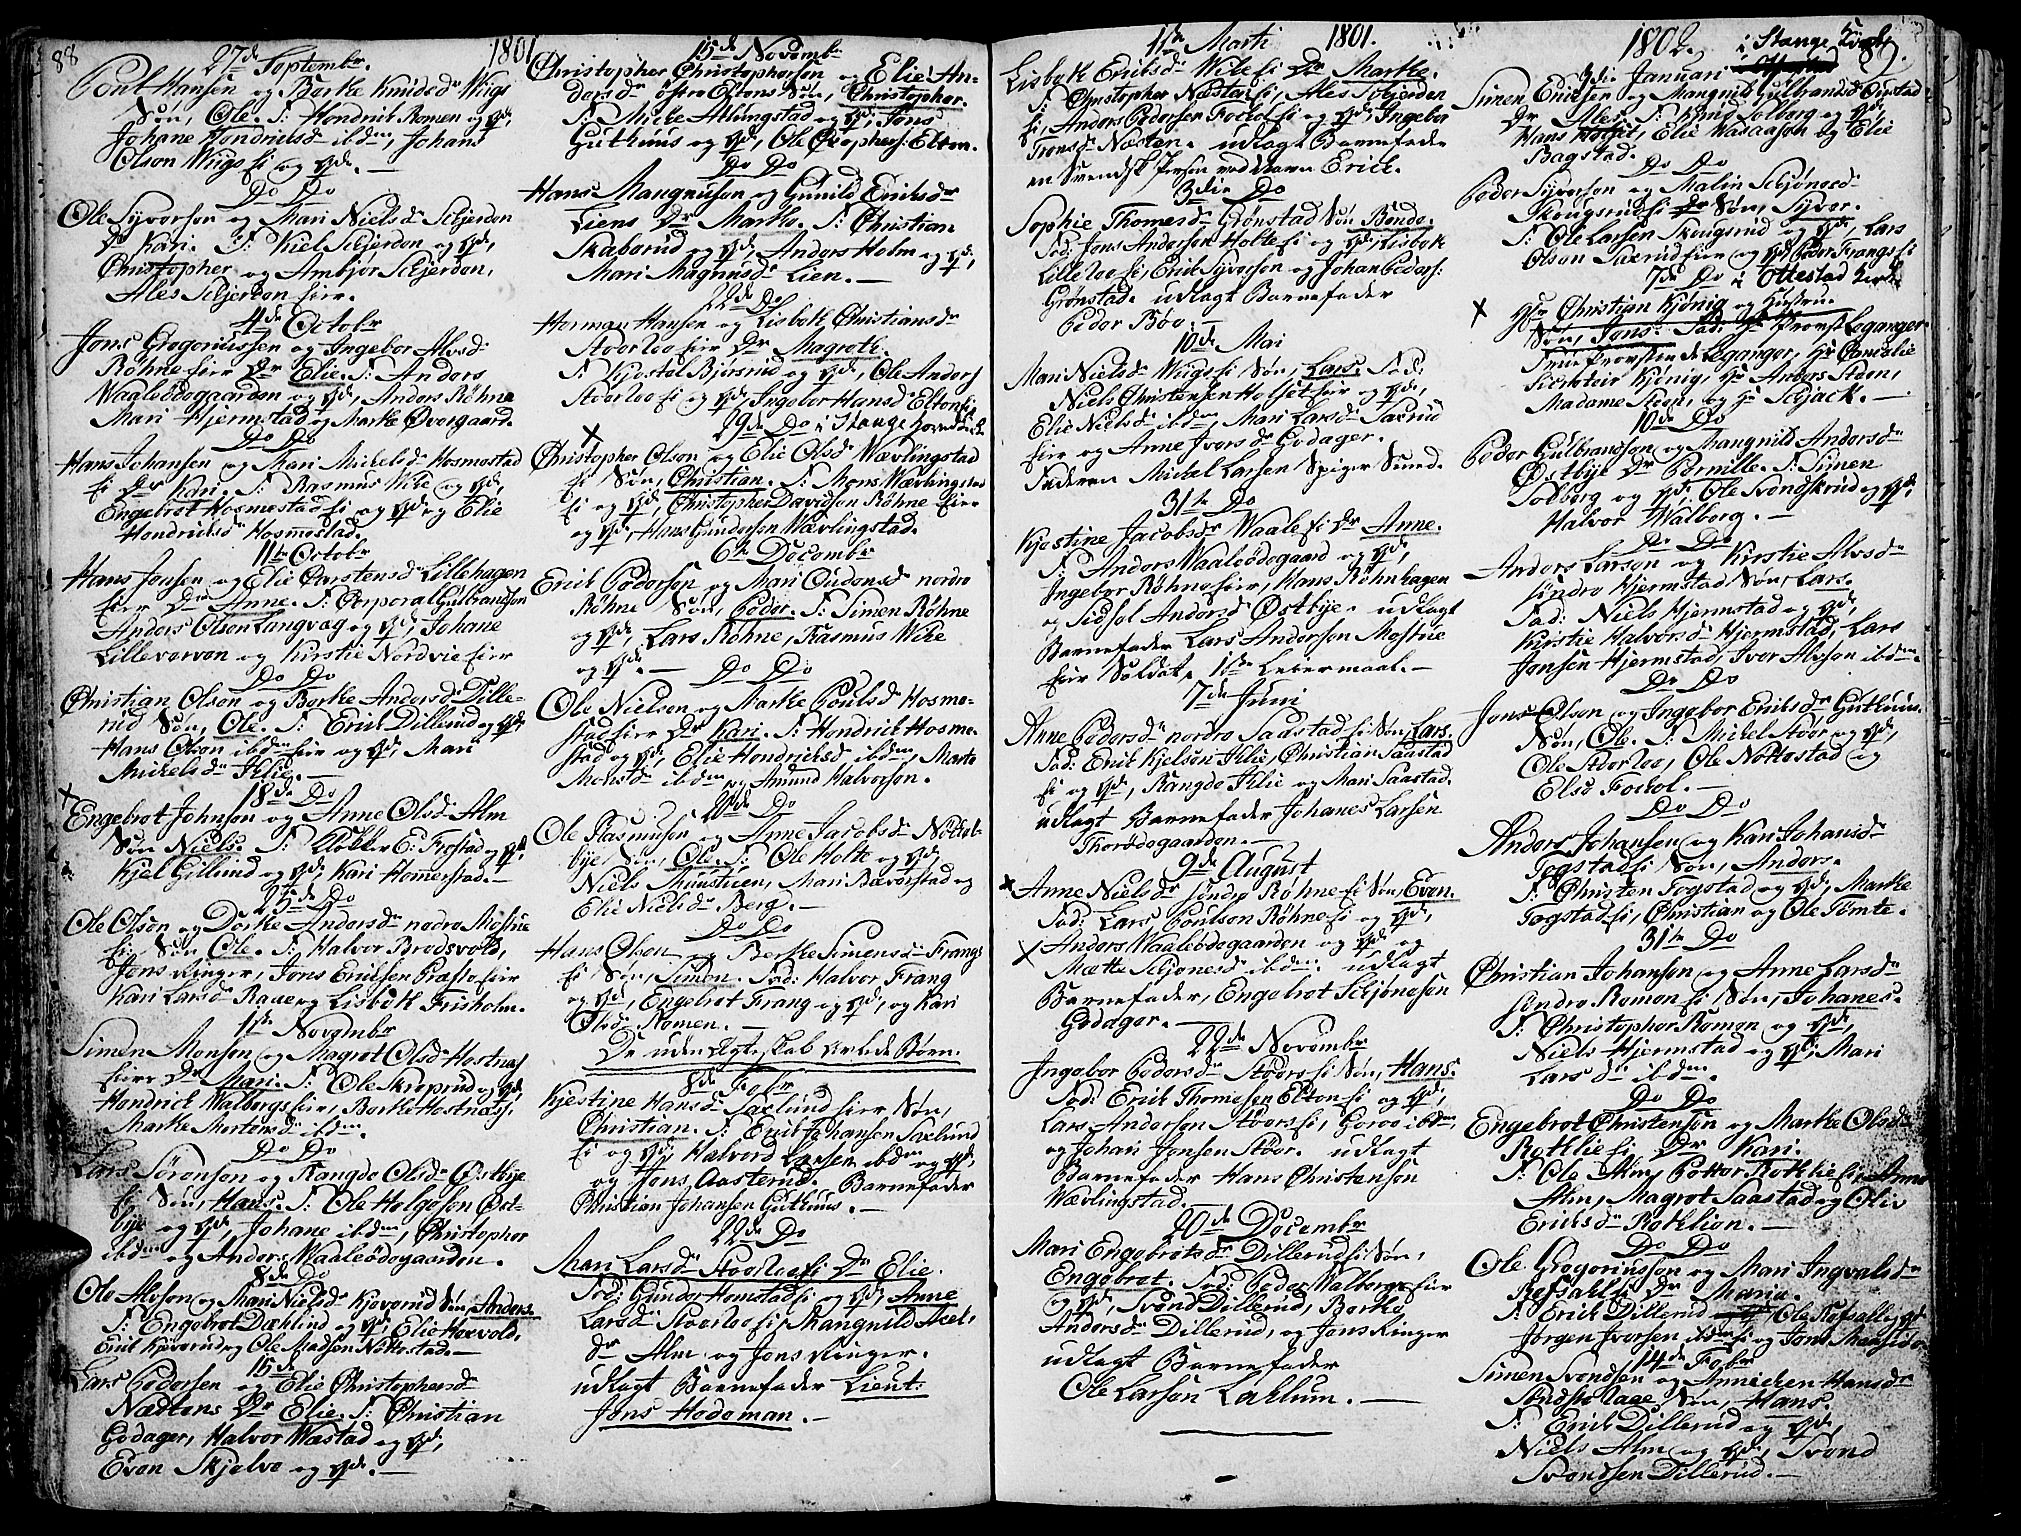 88
1801
27de Septembr.
Poul Hansen og Berthe Knudsdr Wiigs
Søn, Ole. T: Hendrik Romen og qde,
Johane Hendriksdr ibdm, Johans
Olson Wiigs ei og qde.
Do Do
Ole Syversøn og Mari Nielsdr Schjerden
Dr Kari. T: Kiel Schjerden og qde,
Christopher og Ambjør Schjerden,
Ales Schjerden eier.
4de Octobr
Jens Gregoriussen og Ingebor Alvsdr
Røhne eier Dr Elie. T: Anders
Waaleødegaarden og qde, Anders Røhne
Mari Hjermstad og Marthe Øvergaard.
Do Do
Hans Johansen og Mari Mickelsdr Hosmestad
ei Dr Kari. T: Rasmus Wike og qde,
Engebret Hosmestad ei og qde og Elie
Hendriksdr Hosmestad.
11te Octobr
Hans Jensen og Elie Carstensdr Lillehagen
eier Dr Anne. T: Corporal Gulbrandsen
Anders Olsen Langvag og qde, Johane
Lilleverven og Kirstie Nordvie eier
Do Do
Christian Olsen og Berthe Andersdr Dille-
rud Søn, Ole. T: Erik Dillerud og qde,
Hans Olson ibdm eier og qde, Mari
Mickelsdr Ilie.
18de Do
Engebret Johnsen og Anne Olsdr Alm
Søn Niels. T: Klokker E: Frestad og qde,
Kjel Gillund og qde, Kari Hemerstad.
25de Do
Ole Olson og Dorthe Andersdr nordre Mostue
ei, Søn Ole. T: Halvor Bredsvold,
Jens Ringer, Jens Ericksen Præsto eier
Kari Larsdr Raae og Lisbeth Frisholm.
1ste Novembr
Simen Monsen og Magret Olsdr Hostnæs
eier Dr Mari. T: Ole Skroprud og qde,
Hendrick Walbergs eier, Berthe Hostnæs,
Marthe Mortensdr ibdm.
Do Do
Lars Sørensen og Rangde Olsdr Østbye
ei Søn, Hans. T: Ole Holgesen Øst-
bye og qde, Johane ibdm, Christopher
ibdm og Anders Waaleødegaarden.
8de Do
Ole Alvson og Mari Nielsdr Kjeverud Søn, Anders.
T: Engebret Dæhlind og qde, Elie Hoevold,
Erik Kjeverud og Ole Madsen Nottestad.
15de
Lars Pedersen og Elie Christophersdr
Næstens Dr Elie. T: Christian
Godager, Halvor Wæstad og qde,
Even Skjelve og qde.
15de Novembr
Christopher Christophersen og Elie An-
dersdr øfre Eltons Søn, Christopher.
T: Micke Allungstad og qde, Jens
Gutkuus og qde, Ole Christophers: Elton.
Do Do
Hans Maugnusen og Gunild Eriksdr
Liens Dr Marthe. T: Christian
Skaberud og qde, Anders Holm og qde,
Mari Magnusdr Lien.
22de Do
Herman Hansen og Lisbeth Christiansdr
Storloe eier Dr Magrethe.
T: Kjostel Bjørsrud og qde, Ole Anders
Storloe ei og qde, Ingebor Hansdr Elton ei
29de Do i Stange
Christopher Olson og Elie Olsdr Wævlingstad
ei Søn, Christian. T: Mons Wævlingstad
ei og qde, Christopher Davidsen Røhne eier
og qde, Hans Gundersen Wævlingstad.
6te Decembr
Erick Pedersen og Mari Eudensdr nordre
Røhne Søn, Peder. T: Simen Røhne
og qde, Lars Røhne, Rasmus Wike
og qde.
Do Do
Ole Nielsen og Marthe Poulsdr Hosme-
stad eier Dr Kari. T: Hendrick Hosme-
stad og qde, Elie Hendricksdr ibdm, Marte
Monsdr ibdm og Amund Halvorsen.
20de Do
Ole Rasmusen og Anne Jacobsdr Nottel-
bye Søn, Ole. T: Ole Holte og qde,
Niels Muustuen, Mari Bæverstad og
Elie Nielsdr Berg.
Do Do
Hans Olson og Berthe Simensdr Frangs
ei Søn, Simen. Fad: Halvor Frang
og qde, Engebret Frang og qde, og Kari
Olsdr Romen.
De uden Ægteskab avlede Børn.
8de Febr
Kjestine Hansdr Saxlund eier Søn,
Christian. T: Erik Johansen Saxlund
ei og qde, Halvord Larsen ibdm og qde,
og Jens Aasterud. Barnefader
Christian Johansen Gutkuus.
22de Do
Mari Larsdr Storloe ei Dr Elie.
Fad: Gunder Hemstad ei og qde, Anne
Larsdr Storloe ei, Mangnild Axel-
dr Alm og Jens Ringer.
udlagt Barnefader Lieut:
Jens Hedeman.
1801.
11te Marti
Lisbeth Eriksdr Wike ei Dr Marthe.
T: Christopher Næsten ei, Ales Schjerden
ei, Anders Pedersen Fockol ei og qde, Ingebor
Tronsdr Næsten. udlagt Barnefader
en Svendsk Person ved Navn Erick.
3die Do
Sophie Thomesdr Grønstad Søn Bende.
Fad: Jens Andersen Holte ei og qde, Lisbeth
Lilleloe ei, Erik Syversen og Johan Peders:
Grønstad. udlagt Barnefader
Peder Bøv.
10de Mai
Mari Nielsdr Wiigs ei Søn, Lars. Fad:
Niels Christensen Holset eier og qde,
Elie Nielsdr ibdm, Mari Larsdr Saxrud
eier og Anne Iversdr Godager.
Faderen Mickel Larsen Spiger Smed.
31te Do
Kjestine Jacobsdr Waale ei Dr Anne.
T: Anders Waaleødegaard og qde,
Ingebor Røhne eier, Hans Røhnhagen
og Sidsel Andersdr Østbye. udlagt
Barnefader Lars Andersen Mostue
eier Soldat. 1ste Leiermaal.
7de Juni
Anne Pedersdr nordre Saastad ei Søn, Lars.
Fad: Erik Kjelsen Ilie, Christian Saastad
ei og qde, Rangde Ilie og Mari Saastad.
udlagt Barnefader Johanes Larsen
Thorødegaarden.
9de August
Anne Nielsdr søndre Røhne ei Søn, Even.
Fad: Lars Poulson Røhne ei og qde,
Anders Waaleødegaarden og qde og
Mætte Schjonesdr ibdm. udlagt
Barnefader, Engebret Schjønesen
Godager.
22de Novembr
Ingebor Pedersdr Stoers ei Søn, Hans.
Fad: Erik Thomesen Elton ei og qde,
Lars Andersen Stoers ei, Goroe ibdm,
og Johan Jensen Stoer. udlagt
Barnefader Hans Christensen
Wævlingstad.
20de Decembr
Mari Engebretsdr Dillerud ei Søn,
Engebret. Fad: Peder Walbergs eier
og qde, Svend Dillerud, Berthe
Andersdr Dillerud, og Jens Ringer
udlagt Barnefader
Ole Larsen Lahlum.
89.
1802. i Stange Kirke
3die Januari
Simen Ericksen og Mangnild Gulbrandsdr Opstad
Dr Ales. T: Knud Solberg og qde,
Hans Holset, Elie Wadaasen og Elie
Bagstad.
Do Do
Peder Syversen og Malin Schjønesdr
Skougsrud ei Søn, Syver.
T: Ole Larsen Skougsrud og qde, Lars
Olson Saxrud eier og qde, Peder Frangs ei
7de Do i Ottestad Kirke
Hr Christian Kjønig og Hustru
Søn, Jens. Fad: Hr Provst Leganger
Frue Provstinde Leganger, Hr Cancelie
Kjønig, Hr Anders Steen,
Madame Steen, og Hr Schjack.
10de Do
Peder Gulbrandsen og Mangnild Andersdr
Østbye Dr Pernille. T: Simen
Solberg og qde, Ole Svendskrud og qde,
Halvor Walberg.
Do Do
Anders Larsen og Kirstie Alvsdr
søndre Hjermstad Søn, Lars.
Fad: Niels Hjermstad og qde,
Kirstie Halvorsdr Hjermstad, Lars
Jensen Hjermstad, Iver Alvson ibdm.
Do Do
Jens Olson og Ingebor Eriksdr Gutkuus.
Søn, Ole. T: Mickel Stoer og qde,
Ole Storloe, Ole Nottestad og
Else Fockol.
Do Do
Anders Johansen og Kari Johansdr
Togstad ei Søn, Anders.
T: Christen Togstad og qde, Marthe
Togstad ei, Christian og Ole Tomte.
31te Do
Christian Johansen og Anne Larsdr
søndre Romen ei Søn, Johanes.
T: Christopher Romen og qde,
Niels Hjermstad og qde, Mari
Larsdr ibdm.
Do Do
Engebret Christensen og Marthe Olsdr
Rothlie ei Dr Kari.
T: Ole Alm, Petter Rothlie ei, Anne
Alm, Magret Saastad og Oliv
Eriksdr Rothlien.
Do Do
Ole Gregoriussen og Mari Ingvalsdr
Refsahl ei Dr Maria.
T: Erik Dillerud Ole Refsall og qde
Jørgen Iversen ibdm ei og Jens
14de Febr
Simen Svendsen og Annicken Hansdr
Raae Søn, Hans.
T: Erik Dillerud og qde,
Niels Alm og qde, Svend
Svendsen Dillerud.